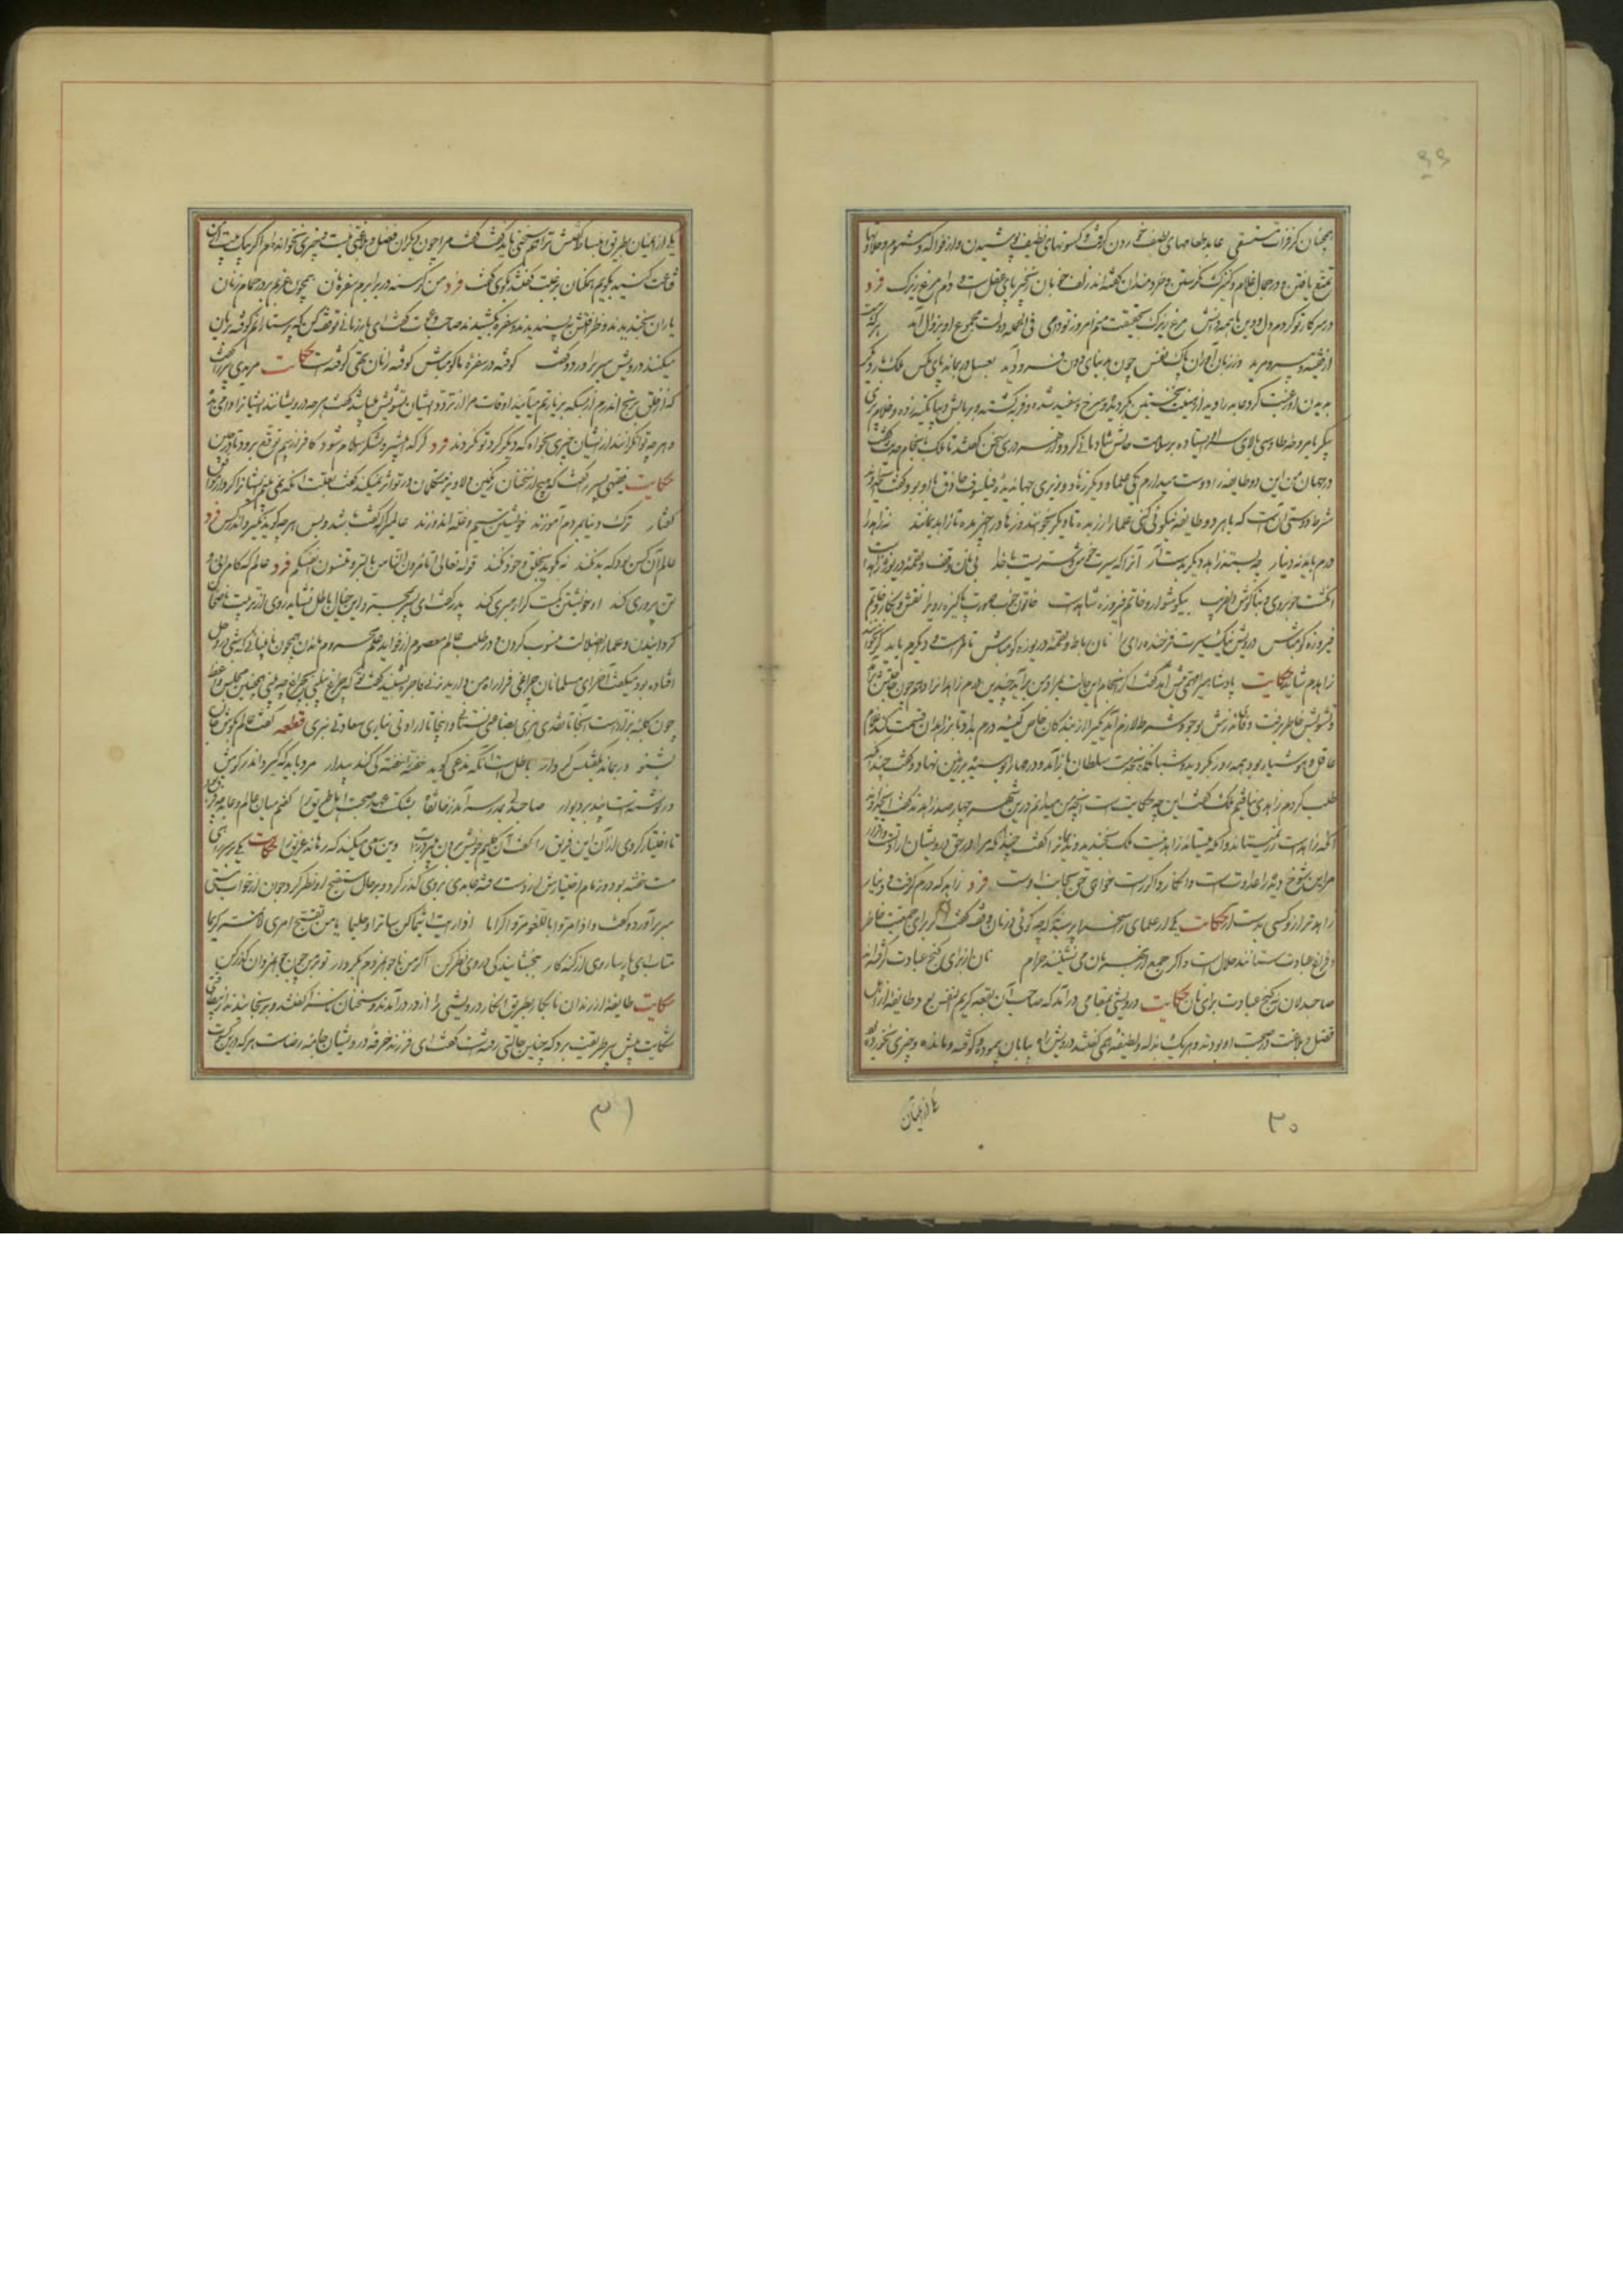 همچنان کز فرات مستسقی عابد طعامهای لطیف خوردن گرفت و کسوتهای نظیف پوشیدن و از فواکه و مشموم و حلاوتها
تمتع یافتن و در جمال غلام و کنیزک نگریستن و خردمندان گفته‌اند زلف خوبان زنجیر پای عقل است و دام مرغ زیرک فرد
در سر کار تو کردم دل و دین با همه دانش مرغ زیرک بحقیقت منم امروز تو دامی فی الجمله دولت مجموع او بزوال آمد هر که هست
از فقیه و پیر و مرید وز زبان آوران پاک نفس چون بدنیای دون فرود آید بعسل در بماند پای مگس ملک
بدیدن او رغبت کرد عابد را دید از هیئت نخستین بگردیده و سرخ و سفید شده و فربه گشته و بر بالش دیبا تکیه زده و غلام پری
پیکر با مروحه طاوسی بالای سر ایستاده بر سلامت حالش شادمانی کرد و از هر دری سخن گفتند تا ملک بانجام سخن گفت
در جهان من این دو طایفه را دوست میدارم یکی علما و دیگر زهاد وزیری جهاندیده فیلسوف حاذق با او بود گفت ای خداوند
شرط دوستی آنست که با هر دو طایفه نیکوئی کنی علما را زر بده تا دیگر بخوانند و زهاد را چیز مده تا زاهد بمانند نه زاهد را
درم باید نه دینار چو بستد زاهدی دیگر بدست آر آنرا که سیرت خوش و سریست با خدا بی نان وقف و لقمه دریوزه زاهد است
انگشت خوبروی و بناگوش دلفریب بی گوشوار و خاتم فیروزه شاهدست خاتون خوب صورت پاکیزه روی را نقش و نگار و خاتم
فیروزه گو مباش درویش نیک سیرت فرخنده رای را نان رباط و لقمه دریوزه گو مباش تا مرا هست و دیگرم باید گر نخوانند
زاهدم شاید حکایت پادشاهی را مهمی پیش آمد گفت اگر انجام این حالت بمراد من برآید چندین درم زاهدانرا دهم چون حاجتش برآمد
و تشویش خاطر برفت وفای نذرش بوجود شرط لازم آمد یکی را از بندگان خاص کیسه درم بداد تا بزاهدان قسمت کند غلام
عاقل و هوشیار بود همه روز بگردید و شبانگاه بخدمت سلطان باز آمد و درمها را بوسه داد و پیش نهاد و گفت چندانکه
طلب کردم زاهدی نیافتم ملک گفت این چه حکایت است آنچه من میدانم درین شهر چهار صد زاهدند گفت ای خداوند
آنکه زاهدست زر نمیستاند و آنکه میستاند زاهد نیست ملک بخندید و ندیمانرا گفت چندانکه مرا در حق درویشان ارادتست و اقرار
مر این شوخ دیده را عداوت است و انکار و اگر راست خواهی حق بجانب اوست فرد زاهد که درم گرفت و دینار
زاهدتر ازو کسی بدست آر حکایت یکی از علمای راسخ را پرسیدند که چه گوئی در نان وقف گفت اگر برای جمعیت خاطر
و فراغ عبادت ستانند حلال است و اگر جمع از بهر نان می نشینند حرام نان از برای کنج عبادت گرفته‌اند
صاحبدلان نه کنج عبادت برای نان حکایت درویشی بمقامی درآمد که صاحب آن بقعه کریم النفس بود و طایفه از اهل
فضل و بلاغت در صحبت او بودند و هر یک بذله و لطیفه همی گفتند درویش راه بیابان پیموده و کوفته و مانده و چیزی نخورده بود
یکی از میان
۳۰
یکی از آن میان بطریق انبساط گفتش ترا هم سخنی باید گفت گفت مرا چون دیگران فضل و بلاغتی نیست و چیزی نخوانده‌ام اگر بیک بیت از من
قناعت کنید بگویم همگنان برغبت گفتند بگوی گفت فرد من گرسنه در برابرم سفره نان همچون عزبم بر در حمام زنان
یاران بخندیدند و ظرافتش بپسندیدند و سفره کشیدند صاحب دعوت گفت ای یار زمانی توقف کن که پرستارانم کوفته بریان
میکنند درویش سر برآورد و گفت کوفته در سفره ما گو مباش کوفته را نان تهی کوفته است حکایت مریدی پیر را گفت
که از خلق برنج اندرم از بسکه بزیارتم میآیند اوقات مرا از تردد ایشان تشویش میباشد گفت هر چه درویشانند ایشانرا وامی بده
و هر چه توانگرانند از ایشان چیزی بخواه که دیگر گرد تو نگردند فرد گر گدا پیشرو لشکر اسلام شود کافر از بیم توقع برود تا در چین
حکایت فقیهی پدر را گفت که هیچ از سخنان رنگین دلاویز متکلمان در من اثر نمیکند گفت بعلت آنکه نمی بینم ایشانرا کردار موافق
گفتار ترک دنیا بمردم آموزند خویشتن سیم و غله اندوزند عالمی را که گفت باشد و بس هر چه گوید نگیرد اندر کس فرد
عالم آن کس بود که بد نکند نه بگوید بخلق و خود نکند قوله تعالی اتأمرون الناس بالبر و تنسون انفسکم فرد عالم که کامرانی و
تن پروری کند او خویشتن گمست کرا رهبری کند پدر گفت ای پسر بمجرد این خیال باطل نشاید روی از تربیت ناصحان
گردانیدن و علما را بضلالت منسوب کردن و در طلب عالم معصوم از فواید علم محروم ماندن همچون نابینائی که شبی در وحل
افتاده بود میگفت آخر ای مسلمانان چراغی فرا راه من دارید زنی فاجره بشنید گفت تو که چراغ نبینی بچراغ چه بینی همچنین مجلس وعظ
چون کلبه بزازست آنجا تا نقدی ندهی بضاعتی نستانی و اینجا تا ارادتی نیاری سعادتی نبری قطعه گفت عالم بگوش جان
بشنو ور نماند بگفتنش کردار باطل است آنکه مدعی گوید خفته را خفته کی کند بیدار مرد باید که گیرد اندر گوش
ور نوشتست پند بر دیوار صاحبدلی بمدرسه آمد ز خانقاه بشکست عهد صحبت اهل طریق را گفتم میان عالم و عابد چه فرق بود
تا اختیار کردی از آن این فریق را گفت آن گلیم خویش برون میبرد ز آب وین سعی میکند که رهاند غریق را حکایت یکی بر سر راهی
مست خفته بود و زمام اختیارش از دست رفته عابدی بروی گذر کرد و بر حال مستقبح او نظر کرد جوان از خواب مستی
سر برآورد و گفت و اذا مروا باللغو مروا کراما اذا رایت اثیما کن ساترا و حلیما یا من تقبح امری لم لا تمر کریما
متاب ای پارسا روی از گنه کار ببخشایندگی در وی نظر کن اگر من ناجوانمردم بکردار تو بر من چون جوانمردان گذر کن
حکایت طایفه از رندان نابکار بطریق انکار درویشی را از در درآمدند و سخنان ناسزا گفتند و برنجانیدند از بیطاقتی
شکایت پیش پیر طریقت برد که چنین حالتی رفتست گفت ای فرزند خرقه درویشان جامه رضاست هر که درین کسوت
۳۱